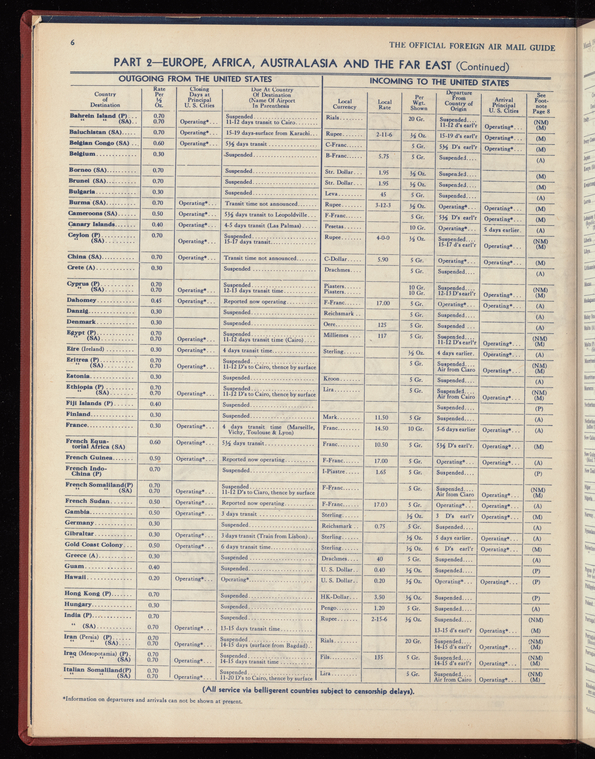 6
THE OFFICIAL FOREIGN AIR MAIL GUIDE
PART 2—EUROPE, AFRICA, AUSTRALASIA AND THE FAR EAST (Continued)
OUTGOING FROM THE UNITED STATES INCOMING TO THE UNITED STATES
Country of Destination Rate Per ½ Oz. Closing Days at Principal U. S. Cities Due At Country Of Destination (Name Of Airport In Parenthesis Local Currency Local Rate Per Wgt. Shown Departure From Country of Origin Arrival Principal U. S. Cities See Footnote Page 8
Bahrein Island (P)... 0.70 Suspended Rials 20 Gr. Suspended (NM)
" " (SA).. 0.70 Operating*... 11-12 days transit to Cairo 11-12 d's earl'r Operating*... (M)
Baluchistan (SA) 0.70 Operating*... 15-19 days-surface from Karachi... Rupee 2-11-6 ½ Oz. 15-19 d's earl'r Operating*... (M)
Belgian Congo (SA) 0.60 Operating*... 5½ days transit C-Franc 5 Gr. 5½ D's earl'r Operating*... (M)
Belgium 0.30 Suspended B-Franc 5.75 5 Gr. Suspended (A)
Borneo (SA) 0.70 Suspended Str. Dollar 1.95 ½ Oz. Suspended (M)
Brunei (SA) 0.70 Suspended Str. Dollar 1.95 ½ Oz. Suspended (M)
Bulgaria 0.30 Suspended Leva 45 5 Gr. Suspended (A)
Burma (SA) 0.70 Operating*... Transit time not announced Rupee 5-12-3 ½ Oz. Operating* Operating*... (M)
Cameroons (SA) 0.50 Operating*... 5½ days transit to Leopoldville F-Franc 5 Gr. 5½ D's earl'r Operating*... (M)
Canary Islands 0.40 Operating*... 4-5 days transit (Las Palmas) Pesetas 10 Gr. Operating* 5 days earlier (A)
Ceylon (P) 0.70 Suspended Rupee 4-0-0 ½ Oz. Suspended (NM)
" (SA) Operating*... 15-17 days transit 15-17 d's earl'r Operating*... (M)
China (SA) 0.70 Operating*... Transit time not announced C-Dollar 5.90 5 Gr. Operating* Operating*... (M)
Crete (A) 0.30 Suspended Drachmes 5 Gr. Suspended (A)
Cyprus (P) 0.70 Suspended Piasters 10 Gr. Suspended (NM)
" (SA) 0.70 Operating*... 12-13 days transit time Piasters 10 Gr. 12-13 D's earl'r Operating*... (M)
Dahomey 0.45 Operating*... Reported now operating F-Franc 17.00 5 Gr. Operating* Operating*... (A)
Danzig 0.30 Suspended Reichsmark 5 Gr. Suspended (A)
Denmark 0.30 Suspended Oere 125 5 Gr. Suspended (A)
Egypt (P) 0.70 Suspended Milliemes 117 5 Gr. Suspended (NM)
" (SA) 0.70 Operating*... 11-12 days transit time (Cairo) 11-12 D's earl'r Operating*... (M)
Eire (Ireland) 0.30 Operating*... 4 days transit time Sterling ½ Oz. 4 days earlier Operating*... (A)
Eritrea (P) 0.70 Suspended 5 Gr. Suspended (NM)
" (SA) 0.70 Operating*... 11-12 D's to Cairo, thence by surface Air from Ciaro Operating*... (M)
Estonia 0.30 Suspended Kroon 5 Gr. Suspended (A)
Ethiopia (P) 0.70 Suspended Lira 5 Gr. Suspended (NM)
" (SA) 0.70 Operating*... 11-12 D's to Cairo, thence by surface Air from Cairo Operating*... (M)
Fiji Islands (P) 0.40 Suspended Suspended (P)
Finland 0.30 Suspended Mark 11.50 5 Gr Suspended (A)
France 0.30 Operating*... 4 days transit time (Marseille, Franc 14.50 10 Gr. 5-6 days earlier Operating*... (A)
Vichy, Toulouse & Lyon)
French Equatorial Africa (SA) 0.60 Operating*... 5½ days transit Franc 10.50 5 Gr. 5½ D's earl'r Operating*... (M)
French Guinea 0.50 Operating*... Reported now operating F-Franc 17.00 5 Gr. Operating* Operating*... (A)
French Indo-China (P) 0.70 Suspended I-Piastre 1.65 5 Gr. Suspended (P)
French Somaliland(P) 0.70 Suspended F-Franc 5 Gr. Suspended (NM)
" " (SA) 0.70 Operating*... 11-12 D's to Ciaro, thence by surface Air from Ciaro Operating*... (M)
French Sudan 0.50 Operating*... Reported now operating F-Franc 17.03 5 Gr. Operating* Operating*... (A)
Gambia 0.50 Operating*... 3 days transit Sterling ½ Oz. 3 D's earl'r Operating*... (M)
Germany 0.30 Suspended Reichsmark 0.75 5 Gr. Suspended (A)
Gibraltar 0.30 Operating*... 3 days transit (Train from Lisbon) Sterling ½ Oz. 5 days earlier Operating*... (A)
Gold Coast Colony 0.50 Operating*... 6 days transit time Sterling ½ Oz. 6 D's earl'r Operating*... (M)
Greece (A) 0.30 Suspended Drachmes 40 5 Gr. Suspended (A)
Guam 0.40 Suspended U. S. Dollar 0.40 ½ Oz. Suspended (P)
Hawaii 0.20 Operating*... Operating* U. S. Dollar 0.20 ½ Oz. Operating* Operating*... (P)
Hong Kong (P) 0.70 Suspended HK-Dollar 3.50 ½ Oz. Suspended (P)
Hungary 0.30 Suspended Pengo 1.20 5 Gr. Suspended (A)
India (P) 0.70 Suspended Rupee 2-15-6 ½ Oz. Suspended (NM)
" (SA) 0.70 Operating*... 13-15 days transit time 13-15 d's earl'r Operating*... (M)
Iran (Persia) (P) 0.70 Suspended Rials 20 Gr. Suspended (NM)
" " (SA) 0.70 Operating*... 14-15 days (surface from Bagdad) 14-15 d's earl'r Operating*... (M)
Iraq (Mesopotamia) (P) 0.70 Suspended Fils 135 5 Gr. Suspended (NM)
" " (SA) 0.70 Operating*... 14-15 days transit time 14-15 d's earl'r Operating*... (M)
Italian Somaliland(P) 0.70 Suspended Lira 5 Gr. Suspended (NM)
" " (SA) 0.70 Operating*... 11-20 D's to Cairo, thence by surface Air from Cairo Operating*... (M)
(All service via belligerent countries subject to censorship delays).
*Information on departures and arrivals can not be shown at present.